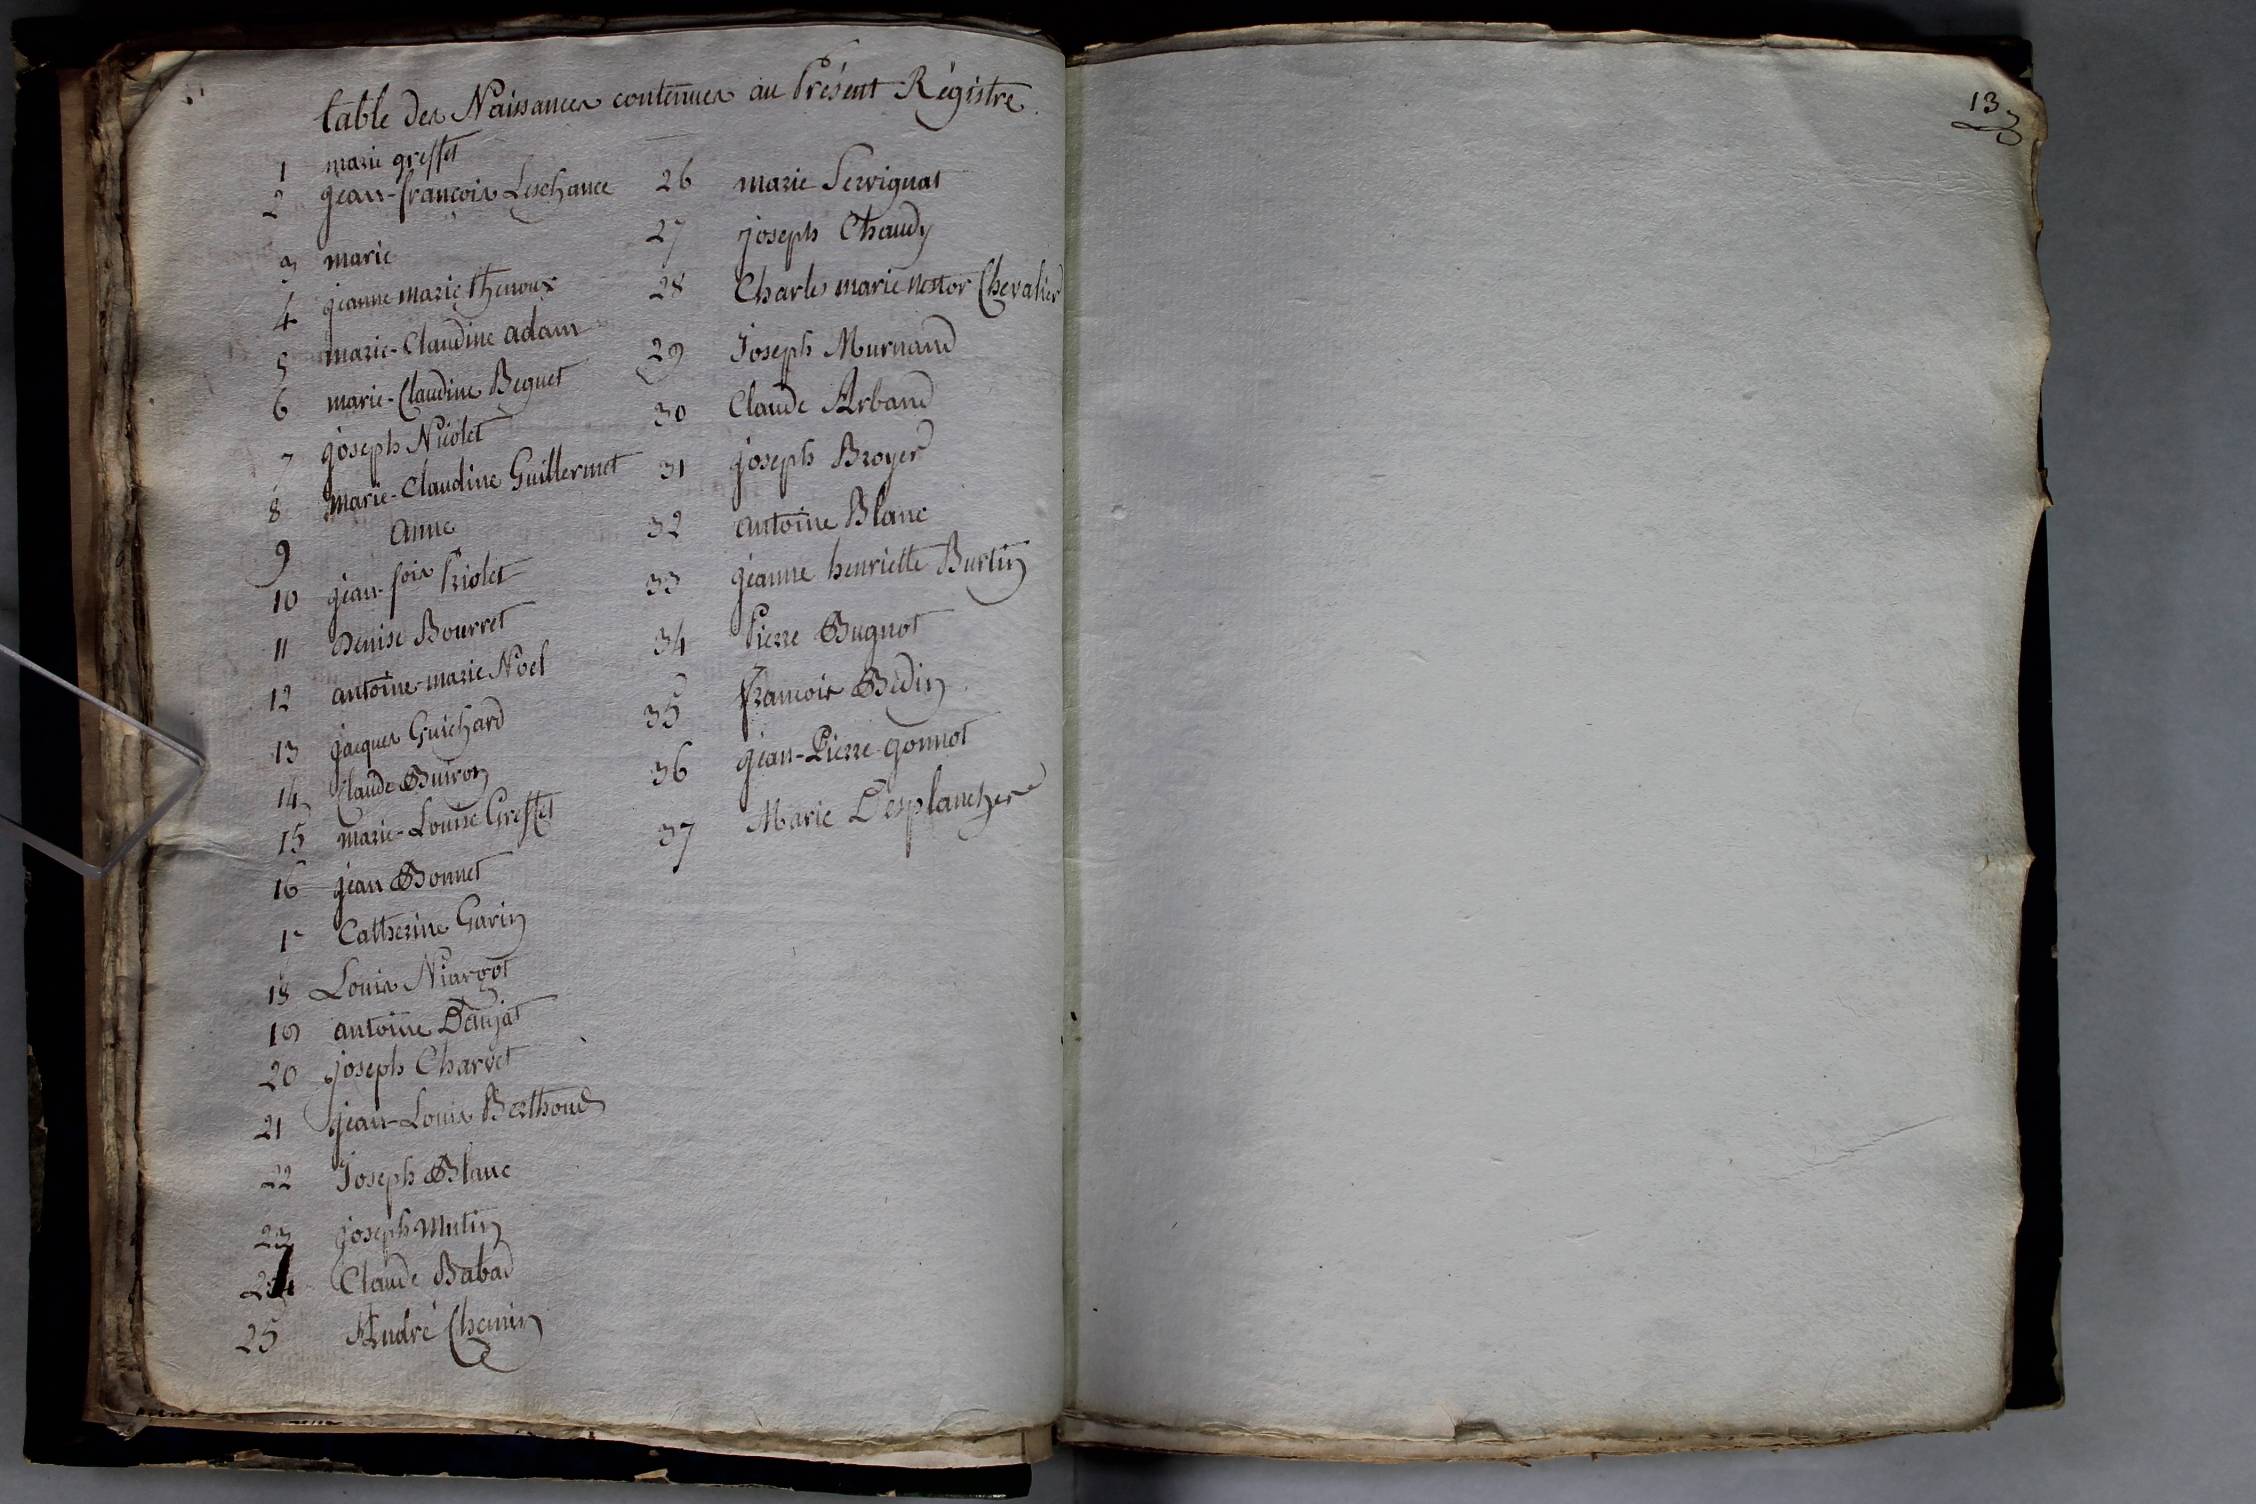 table des Naissances contenues au Présent Régistre
1 marie greffet
2 jean-françois Leschance
3 marie
4 jeanne marie thenoux
5 marie-Claudine adam
6 marie-Claudine Beguet
7 joseph Nicolet
8 marie-Claudine Guillermet
9 anne
10 jean-fois Priolet
11 Denise Bourret
12 antoine-marie Noel
13 jacques Guichard
14 Claude Buiron
15 marie-Louise Greffet
16 jean Bonnet
17 Catherine Garin
18 Louis Niargot
19 antoine Daujat
20 joseph Charvet
21 jean-Louis Berthoud
22 Joseph Blanc
23 joseph mutin
24 Claude Babad
25 André Chemin
26 marie Servignat
27 joseph Chaudy
28 Charles marie nestor Chevalier
29 Joseph Murnand
30 Claude Arband
31 joseph Broyer
32 antoine Blanc
33 jeanne henriette Burtin
34 Pierre Bugnot
35 francois Bedin
36 jean-Pierre gonnot
37 Marie Desplanches
13